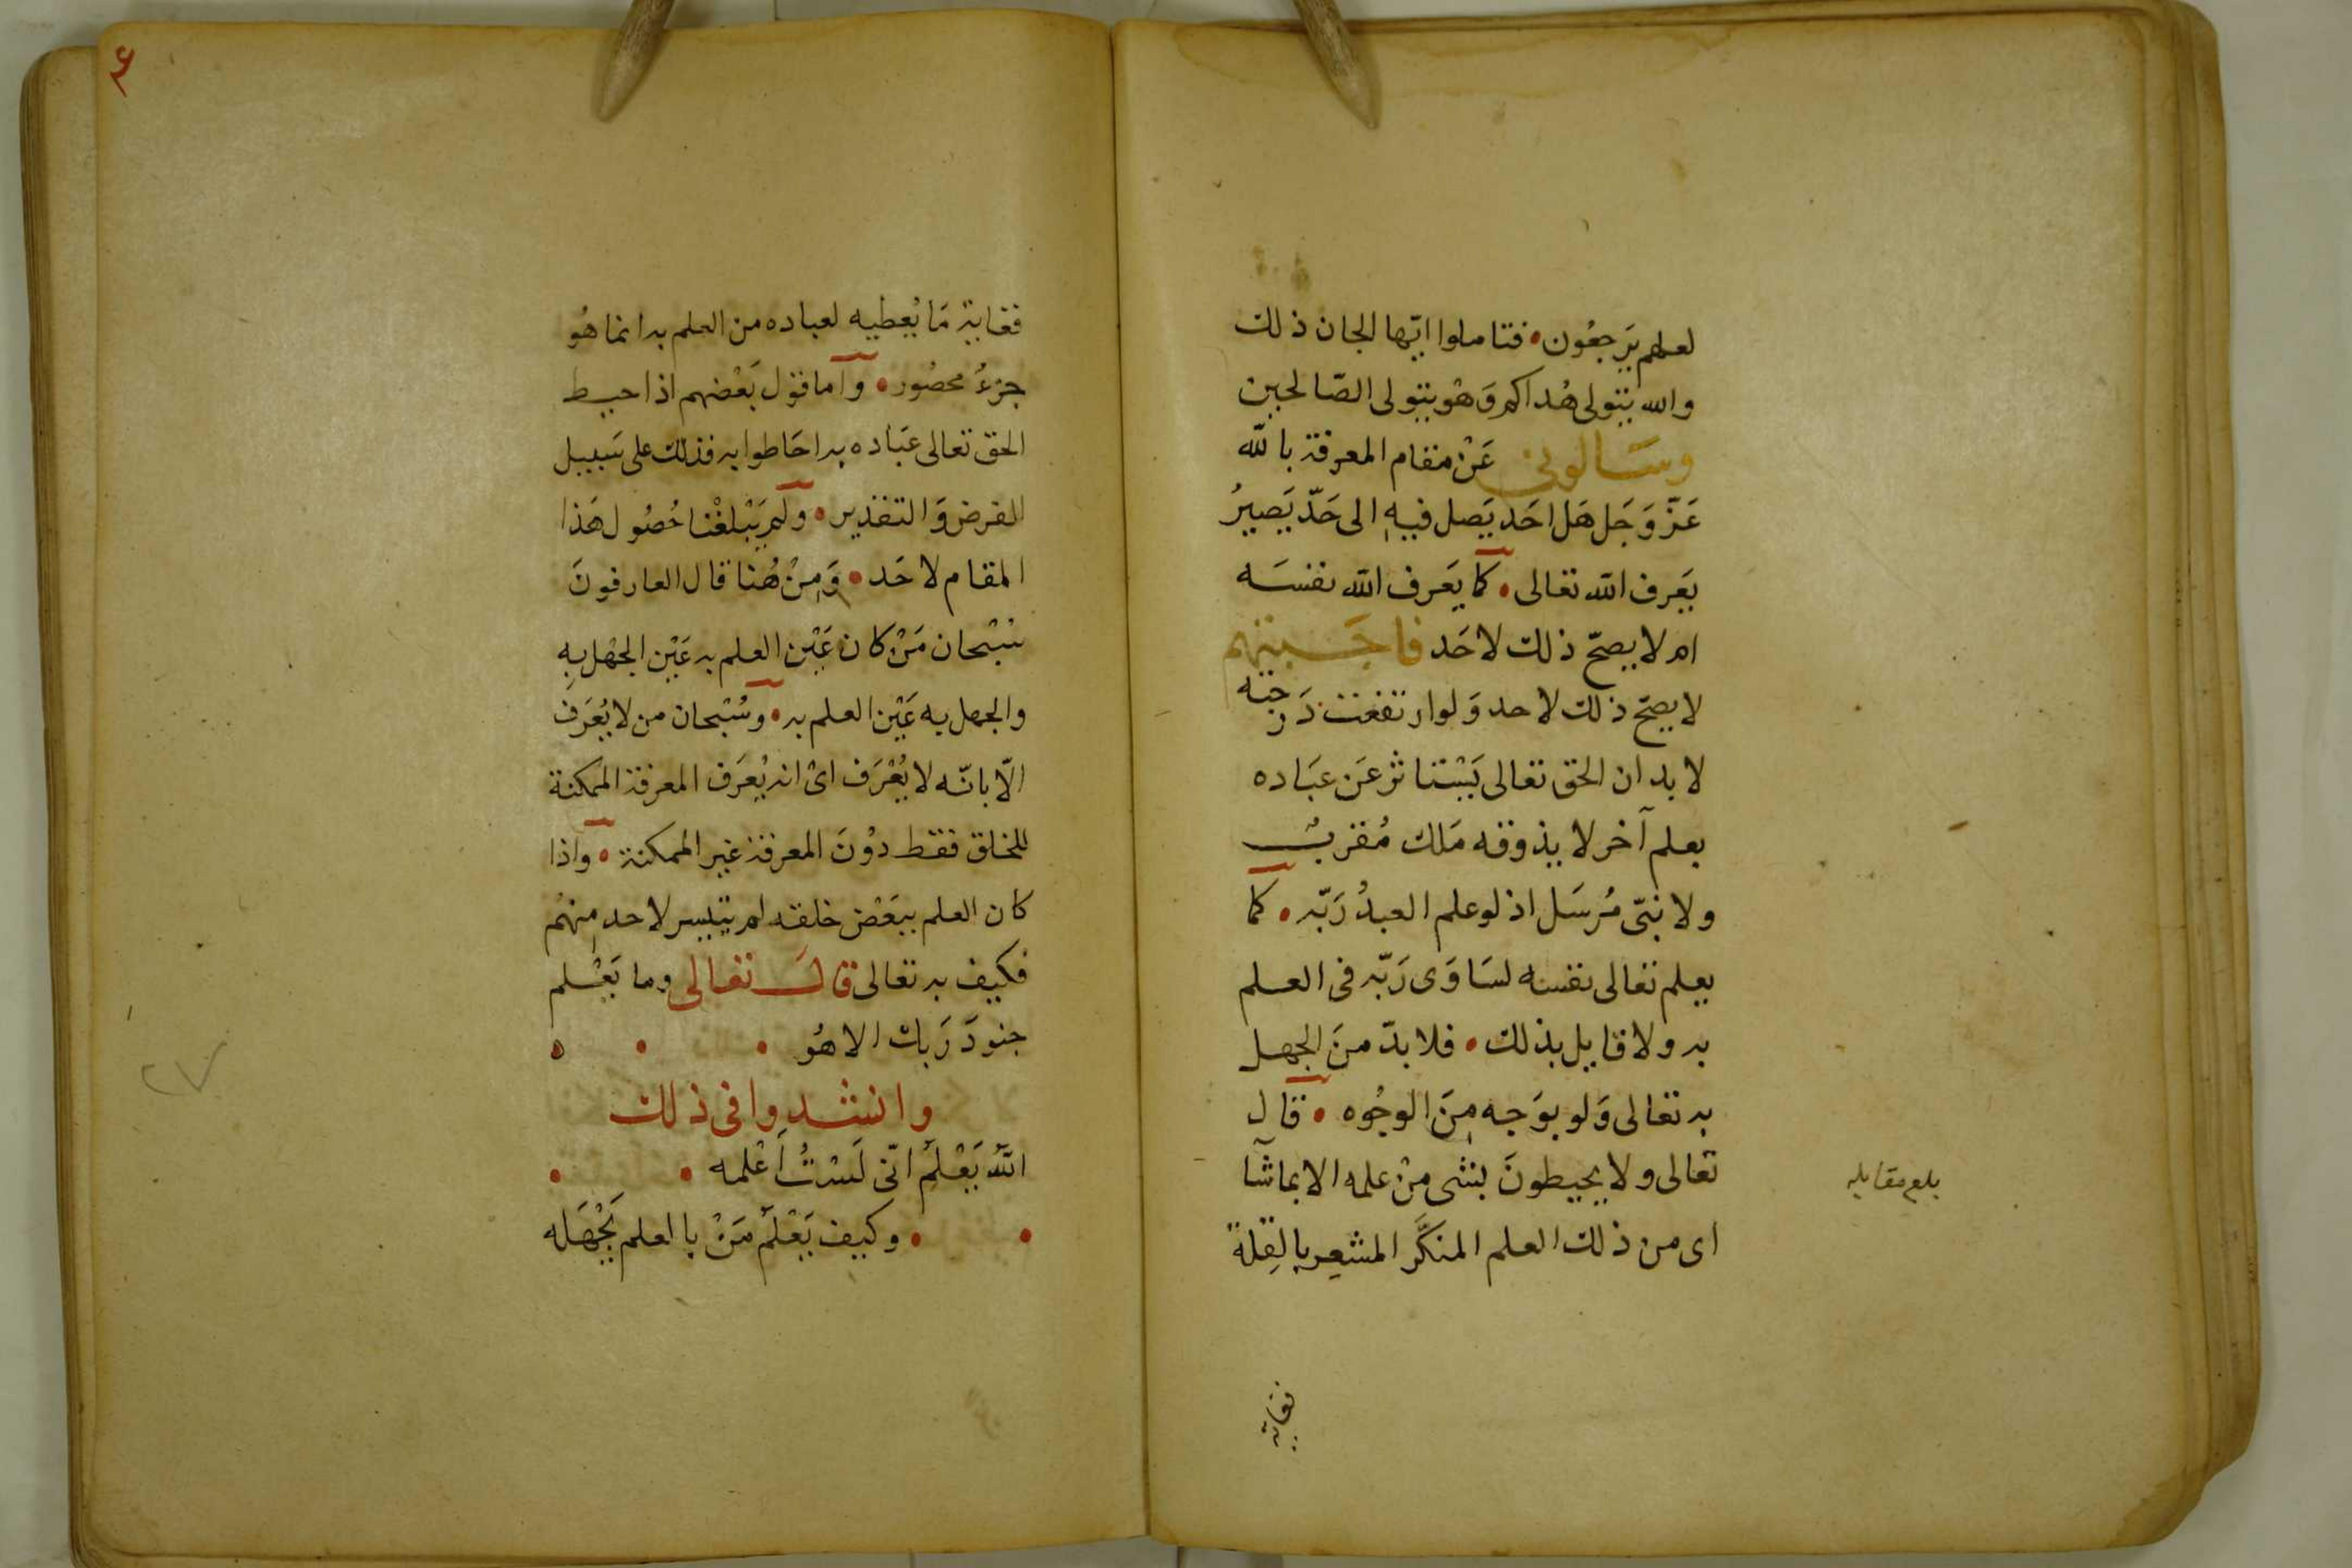 لعلهم يَرجعُون • فتاملوا ايّها الجان ذلك
والله يتولى هُداكم وَهُو يتولى الصّالحين
وسَالوني عَنْ مقام المعرفة بالله
عَزّ وَجَل هَل احَد يَصل فيهِ الى حَدّ يَصيرُ
يَعرف الله تعالى • كما يَعرف الله نفسَه
ام لا يصحّ ذلك لاحَد فاجَبتهم
لا يصحّ ذلك لاحد وَلو ارتفعت دَرجته
لا بد ان الحق تعالى يَسْتاثر عَن عبَاده
بعلم آخر لا يذوقه مَلك مُقربٌ
ولا نبيّ مُرسَل اذ لو علم العبدُ رَبّه • كما
يعلم تعالى نفسه لسَاوَى رَبّه فى العلم
به ولا قايل بذلك • فلا بدّ منَ الجهل
به تعالى وَلو بوَجه مِنَ الوجُوه • قال
تعالى ولا يحيطونَ بشى مِنْ علمه الا بما شآ
اى من ذلك العلم المنَكَّر المشعِر بالقِلة
بلغ مقابله
فغاية
۶
فغاية مَا يُعطيه لعباده من العلم به انما هُو
جزءُ محصُور • واما قول بَعْضهم اذا احيط
الحق تعالى عبَاده به احَاطوا به فذلك على سَبيل
الفرض وَالتقدير • ولم يَبْلغْنا حُصُول هَذا
المقام لاحَد • وَمِنْ هُنا قال العارفونَ
سُبْحان مَنْ كان عَيْن العلم به عَيْن الجهْل بِهِ
والجهل به عَيْن العلم به • وسُبْحان من لا يُعرَف
الّا بانّه لا يُعْرَف اىْ انه يُعرَف المعرفة الممكنة
للخلق فقط دوْنَ المعرفة غير الممكنة • واذا
كان العلم ببَعْض خلقه لم يتيسر لاحد مِنهُم
فكيف به تعالى قالَ تعالى وما يَعْلم
جنودَ رَبك الا هُو • • ه
وانشدوا فى ذلك
اللهُ يَعْلمُ انّى لَسْتُ اَعْلمه • •
• • وكيف يَعْلمُ مَنْ بالعلم يَجْهَله
٢٧